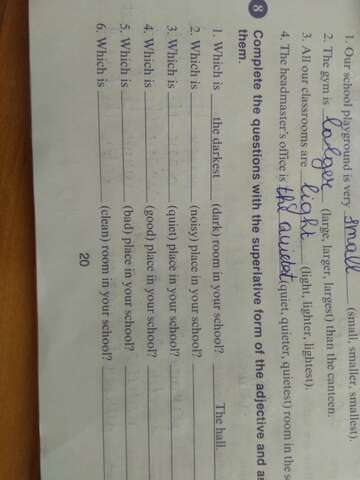 1. Our school playground is very small (small, smaller, smallest).
2. The gym is larger (large, larger, largest) than the canteen.
3. All our classrooms are light (light, lighter, lightest).
4. The headmaster's office is the quietest (quiet, quieter, quietest) room in the
8 Complete the questions with the superlative form of the adjective and
them.
1. Which is the darkest (dark) room in your school? The hall.
2. Which is (noisy) place in your school?
3. Which is (quiet) place in your school?
4. Which is (good) place in your school?
5. Which is (bad) place in your school?
6. Which is (clean) room in your school?
20